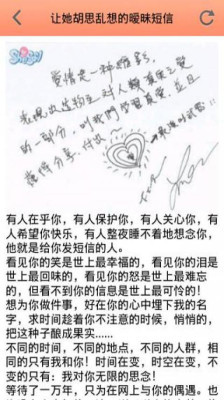 让她胡思乱想的暧昧短信
爱情是一种
的一部分，
懂得分享、付出~
有人在乎你，有人保护你，有人关心你，有
人希望你快乐，有人整夜睡不着地想念你，
他就是给你发短信的人。
看见你的笑是世上最幸福的，看见你的泪是
世上最回味的，看见你的怒是世上最难忘
的，但看不到你的信息是世上最可怜的！
想为你做件事，好在你的心中埋下我的名
字，求时间趁着你不注意的时候，悄悄的，
把这种子酿成果实……
不同的时间，不同的地点，不同的人群，相
同的只有我和你！时间在变，时空在变，不
变的只有：我对你无限的思念！
等待了一万年，只为在网上与你的偶遇。也